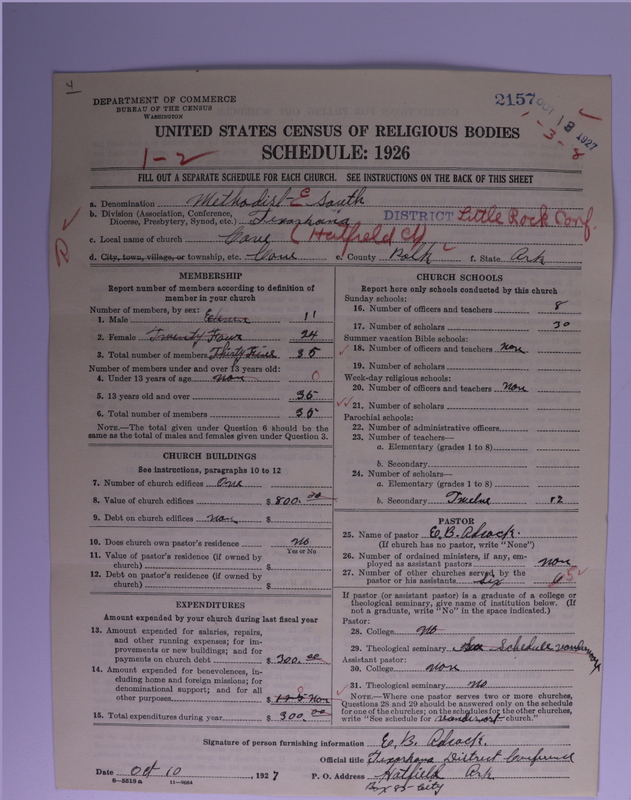 4
DEPARTMENT OF COMMERCE
BUREAU OF THE CENSUS
WASHINGTON
2157 OCT 18 1927
1 - 3 - 8
UNITED STATES CENSUS OF RELIGIOUS BODIES
1-2 SCHEDULE: 1926
FILL OUT A SEPARATE SCHEDULE FOR EACH CHURCH. SEE INSTRUCTIONS ON THE BACK OF THIS SHEET
a. Denomination Methodist E South
b. Division (Association, Conference,
Diocese, Presbytery, Synod, etc.) Texarkana DISTRICT Little Rock Conf.
c. Local name of church Cove (Hatfield C
d. City, town, village, or township, etc. Cove e. County Polk f. State Ark
MEMBERSHIP
Report number of members according to definition of
member in your church
Number of members, by sex:
1. Male Eleven 11
2. Female Twenty Four 24
3. Total number of members Thirty Five 35
Number of members under and over 13 years old:
4. Under 13 years of age non 0
5. 13 years old and over 35
6. Total number of members 35
NOTE.—The total given under Question 6 should be the
same as the total of males and females given under Question 3.
CHURCH BUILDINGS
See instructions, paragraphs 10 to 12
7. Number of church edifices One
8. Value of church edifices $ 800.00
9. Debt on church edifices non $
10. Does church own pastor's residence no
Yes or No
11. Value of pastor's residence (if owned by
church) $
12. Debt on pastor's residence (if owned by
church) $
EXPENDITURES
Amount expended by your church during last fiscal year
13. Amount expended for salaries, repairs,
and other running expenses; for im-
provements or new buildings; and for
payments on church debt $ 300.00
14. Amount expended for benevolences, in-
cluding home and foreign missions; for
denominational support; and for all
other purposes $ non
15. Total expenditures during year $ 300.00
CHURCH SCHOOLS
Report here only schools conducted by this church
Sunday schools:
16. Number of officers and teachers 8
17. Number of scholars 30
Summer vacation Bible schools:
18. Number of officers and teachers non
19. Number of scholars
Week-day religious schools:
20. Number of officers and teachers non
21. Number of scholars
Parochial schools:
22. Number of administrative officers
23. Number of teachers—
a. Elementary (grades 1 to 8)
b. Secondary
24. Number of scholars—
a. Elementary (grades 1 to 8)
b. Secondary Twelve 12
PASTOR
25. Name of pastor E. B. Adcock.
(If church has no pastor, write "None")
26. Number of ordained ministers, if any, em-
ployed as assistant pastors non
27. Number of other churches served by the
pastor or his assistants six 6 5
If pastor (or assistant pastor) is a graduate of a college or
theological seminary, give name of institution below. (If
not a graduate, write "No" in the space indicated.)
Pastor:
28. College no
29. Theological seminary See Schedule vandervoort
Assistant pastor:
30. College non
31. Theological seminary no
NOTE.—Where one pastor serves two or more churches,
Questions 28 and 29 should be answered only on the schedule
for one of the churches; on the schedules for the other churches,
write "See schedule for vandervoort church."
Signature of person furnishing information E. B. Adcock.
Official title Texarkana District Conference
Date Oct 10, 1927 P. O. Address Hatfield Ark
8—5518a 11—9064 Box 83 City